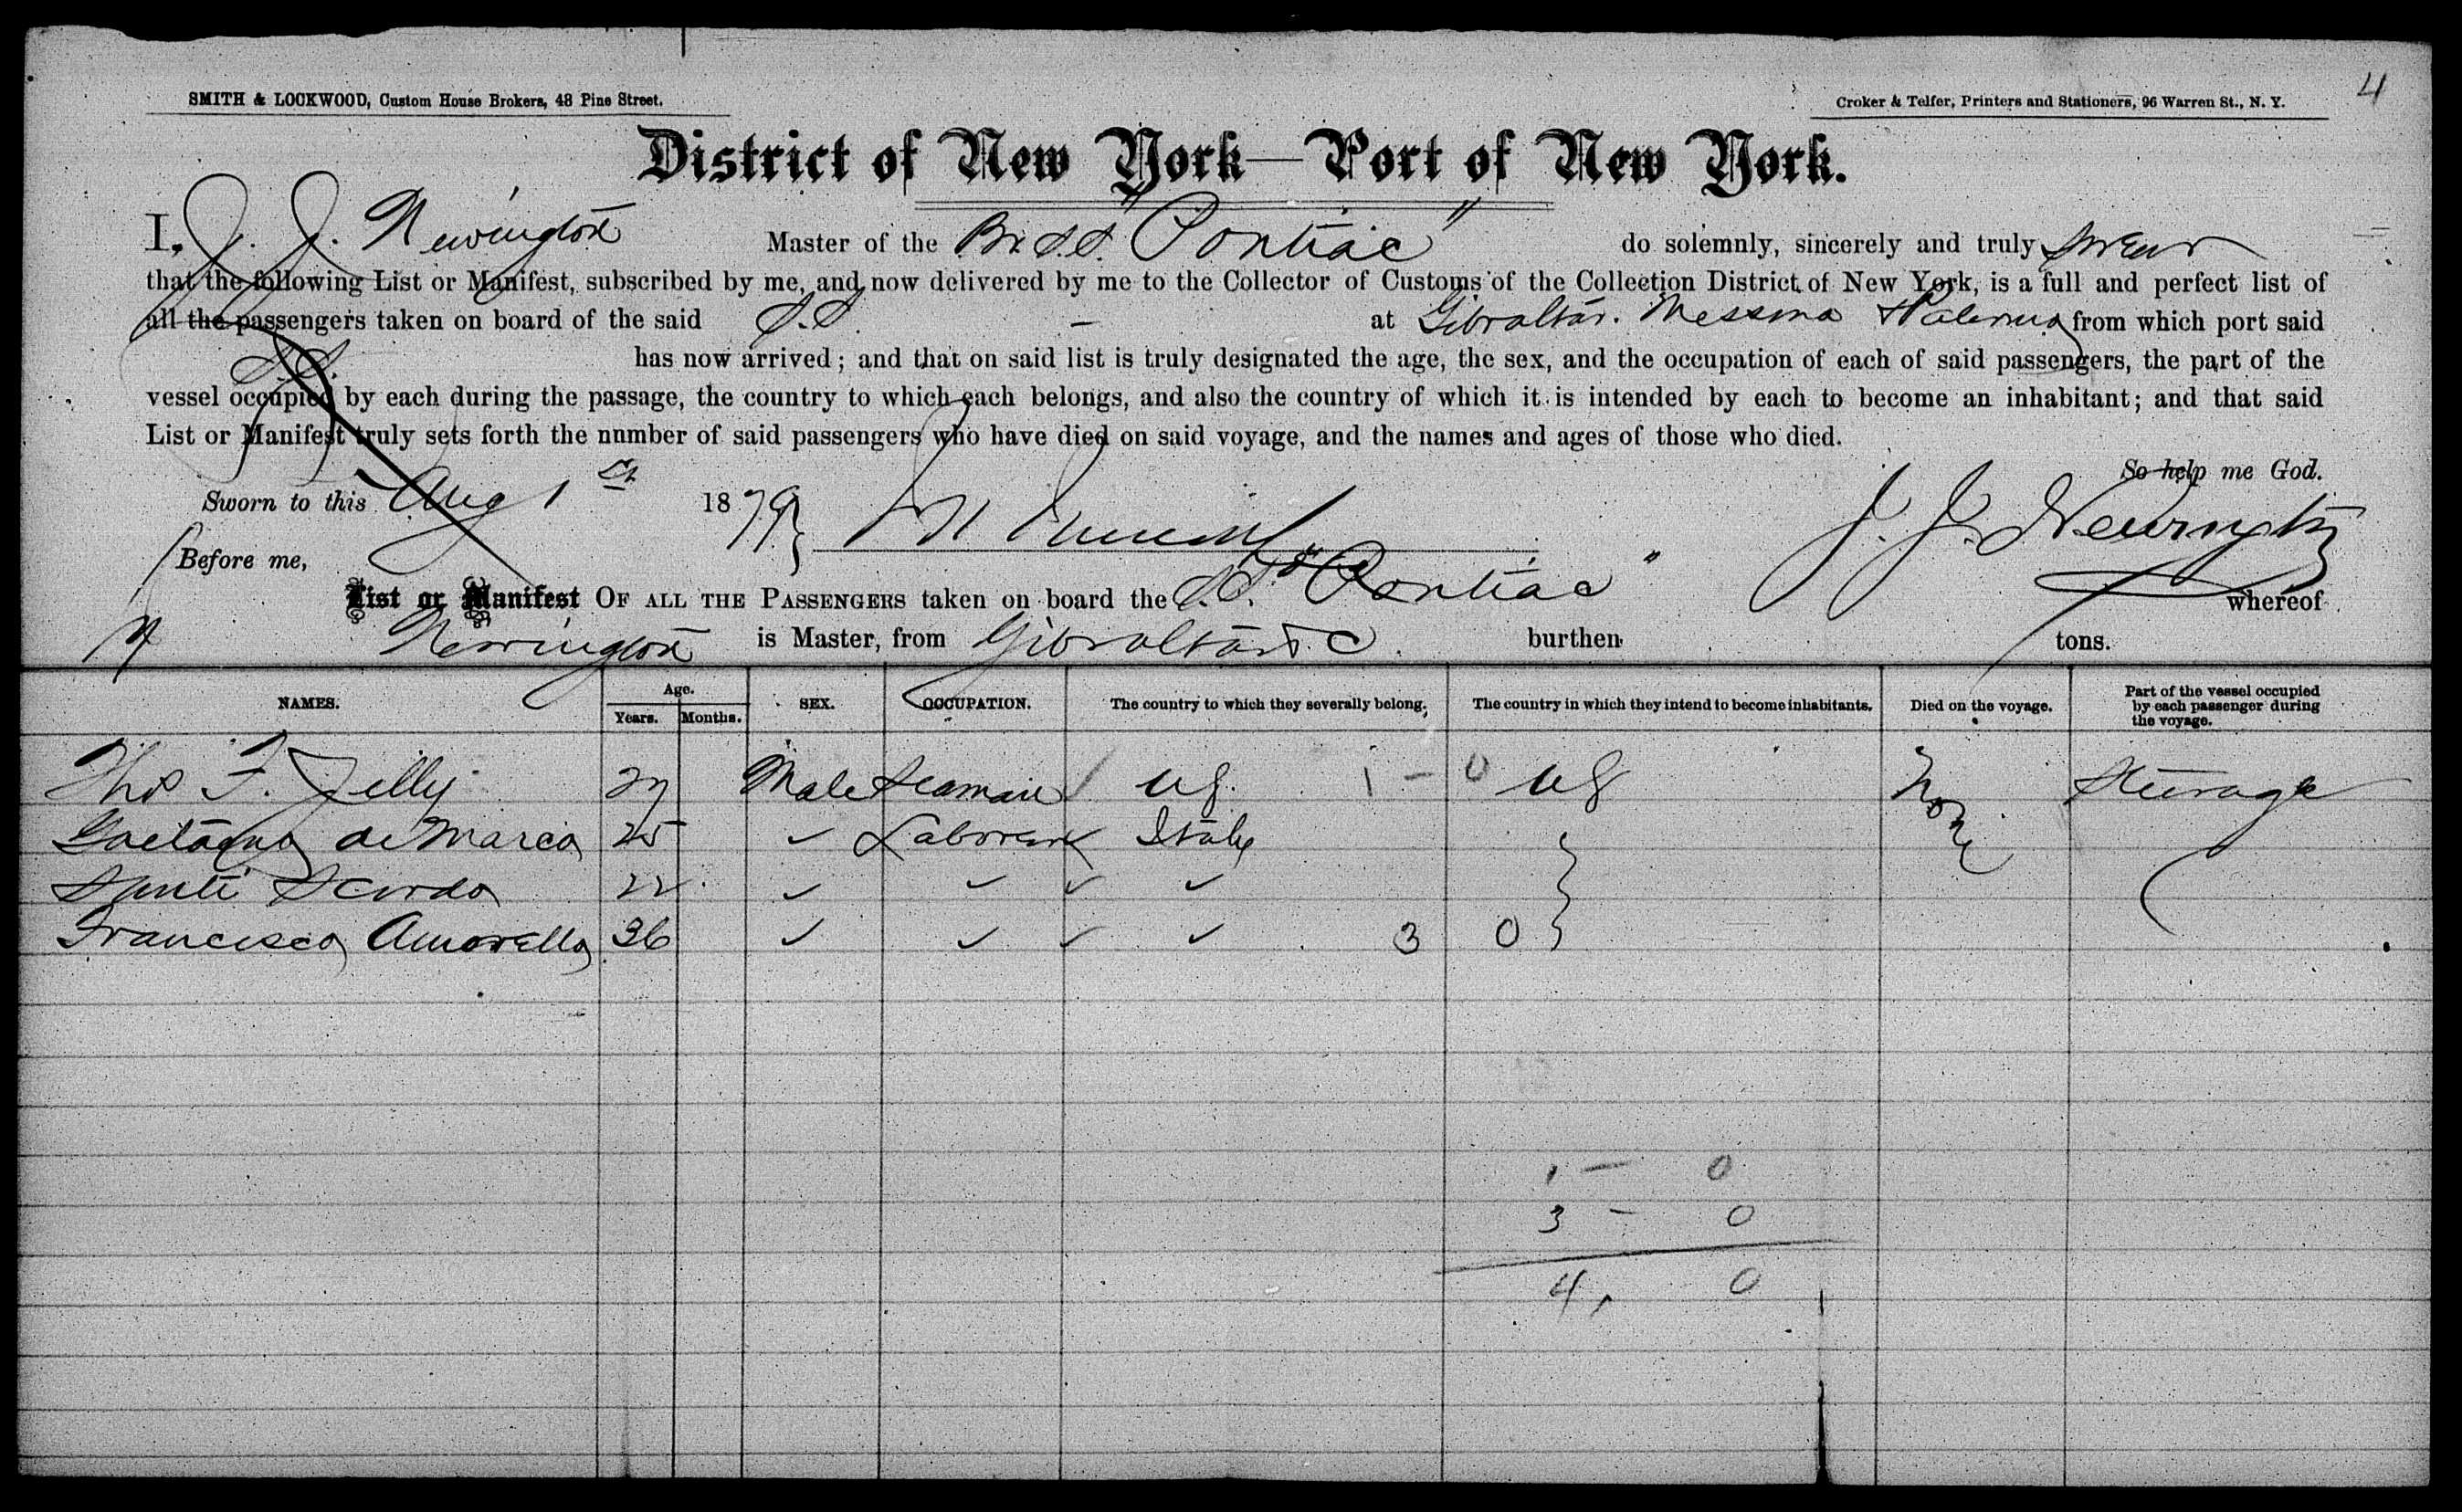 4
SMITH & LOCKWOOD, Custom House Brokers, 48 Pine Street.
Croker & Telfer, Printers and Stationers, 96 Warren St., N. Y.
District of New York—Port of New York.
I, J. J. Newington Master of the Br. S.S. "Pontiac" do solemnly, sincerely and truly swear
that the following List or Manifest, subscribed by me, and now delivered by me to the Collector of Customs of the Collection District of New York, is a full and perfect list of
all the passengers taken on board of the said S.S. — at Gibraltar. Messina & Palermo from which port said
S.S. has now arrived; and that on said list is truly designated the age, the sex, and the occupation of each of said passengers, the part of the
vessel occupied by each during the passage, the country to which each belongs, and also the country of which it is intended by each to become an inhabitant; and that said
List or Manifest truly sets forth the number of said passengers who have died on said voyage, and the names and ages of those who died.
So help me God.
Sworn to this Aug 1st 1879 J. J. Newington
Before me,
List or Manifest OF ALL THE PASSENGERS taken on board the S.S. "Pontiac" whereof
Newington is Master, from Gibraltar &c. burthen tons.
NAMES. Age. Years. Months. SEX. OCCUPATION. The country to which they severally belong. The country in which they intend to become inhabitants. Died on the voyage. Part of the vessel occupied by each passenger during the voyage.
Thos F. Jelly 27 Male Seaman US. 1 - 0 US None Steerage
Gaetano de Marco 25 ✓ Laborer Italy
Santi Scordo 22 ✓ ✓ ✓ ✓
Francisco Amorello 36 ✓ ✓ ✓ ✓ 3 0
1 — 0
3 — 0
4, 0